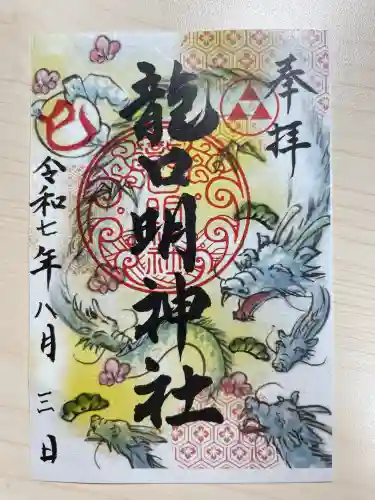 奉拝
龍口明神社
巳
令和七年八月三日